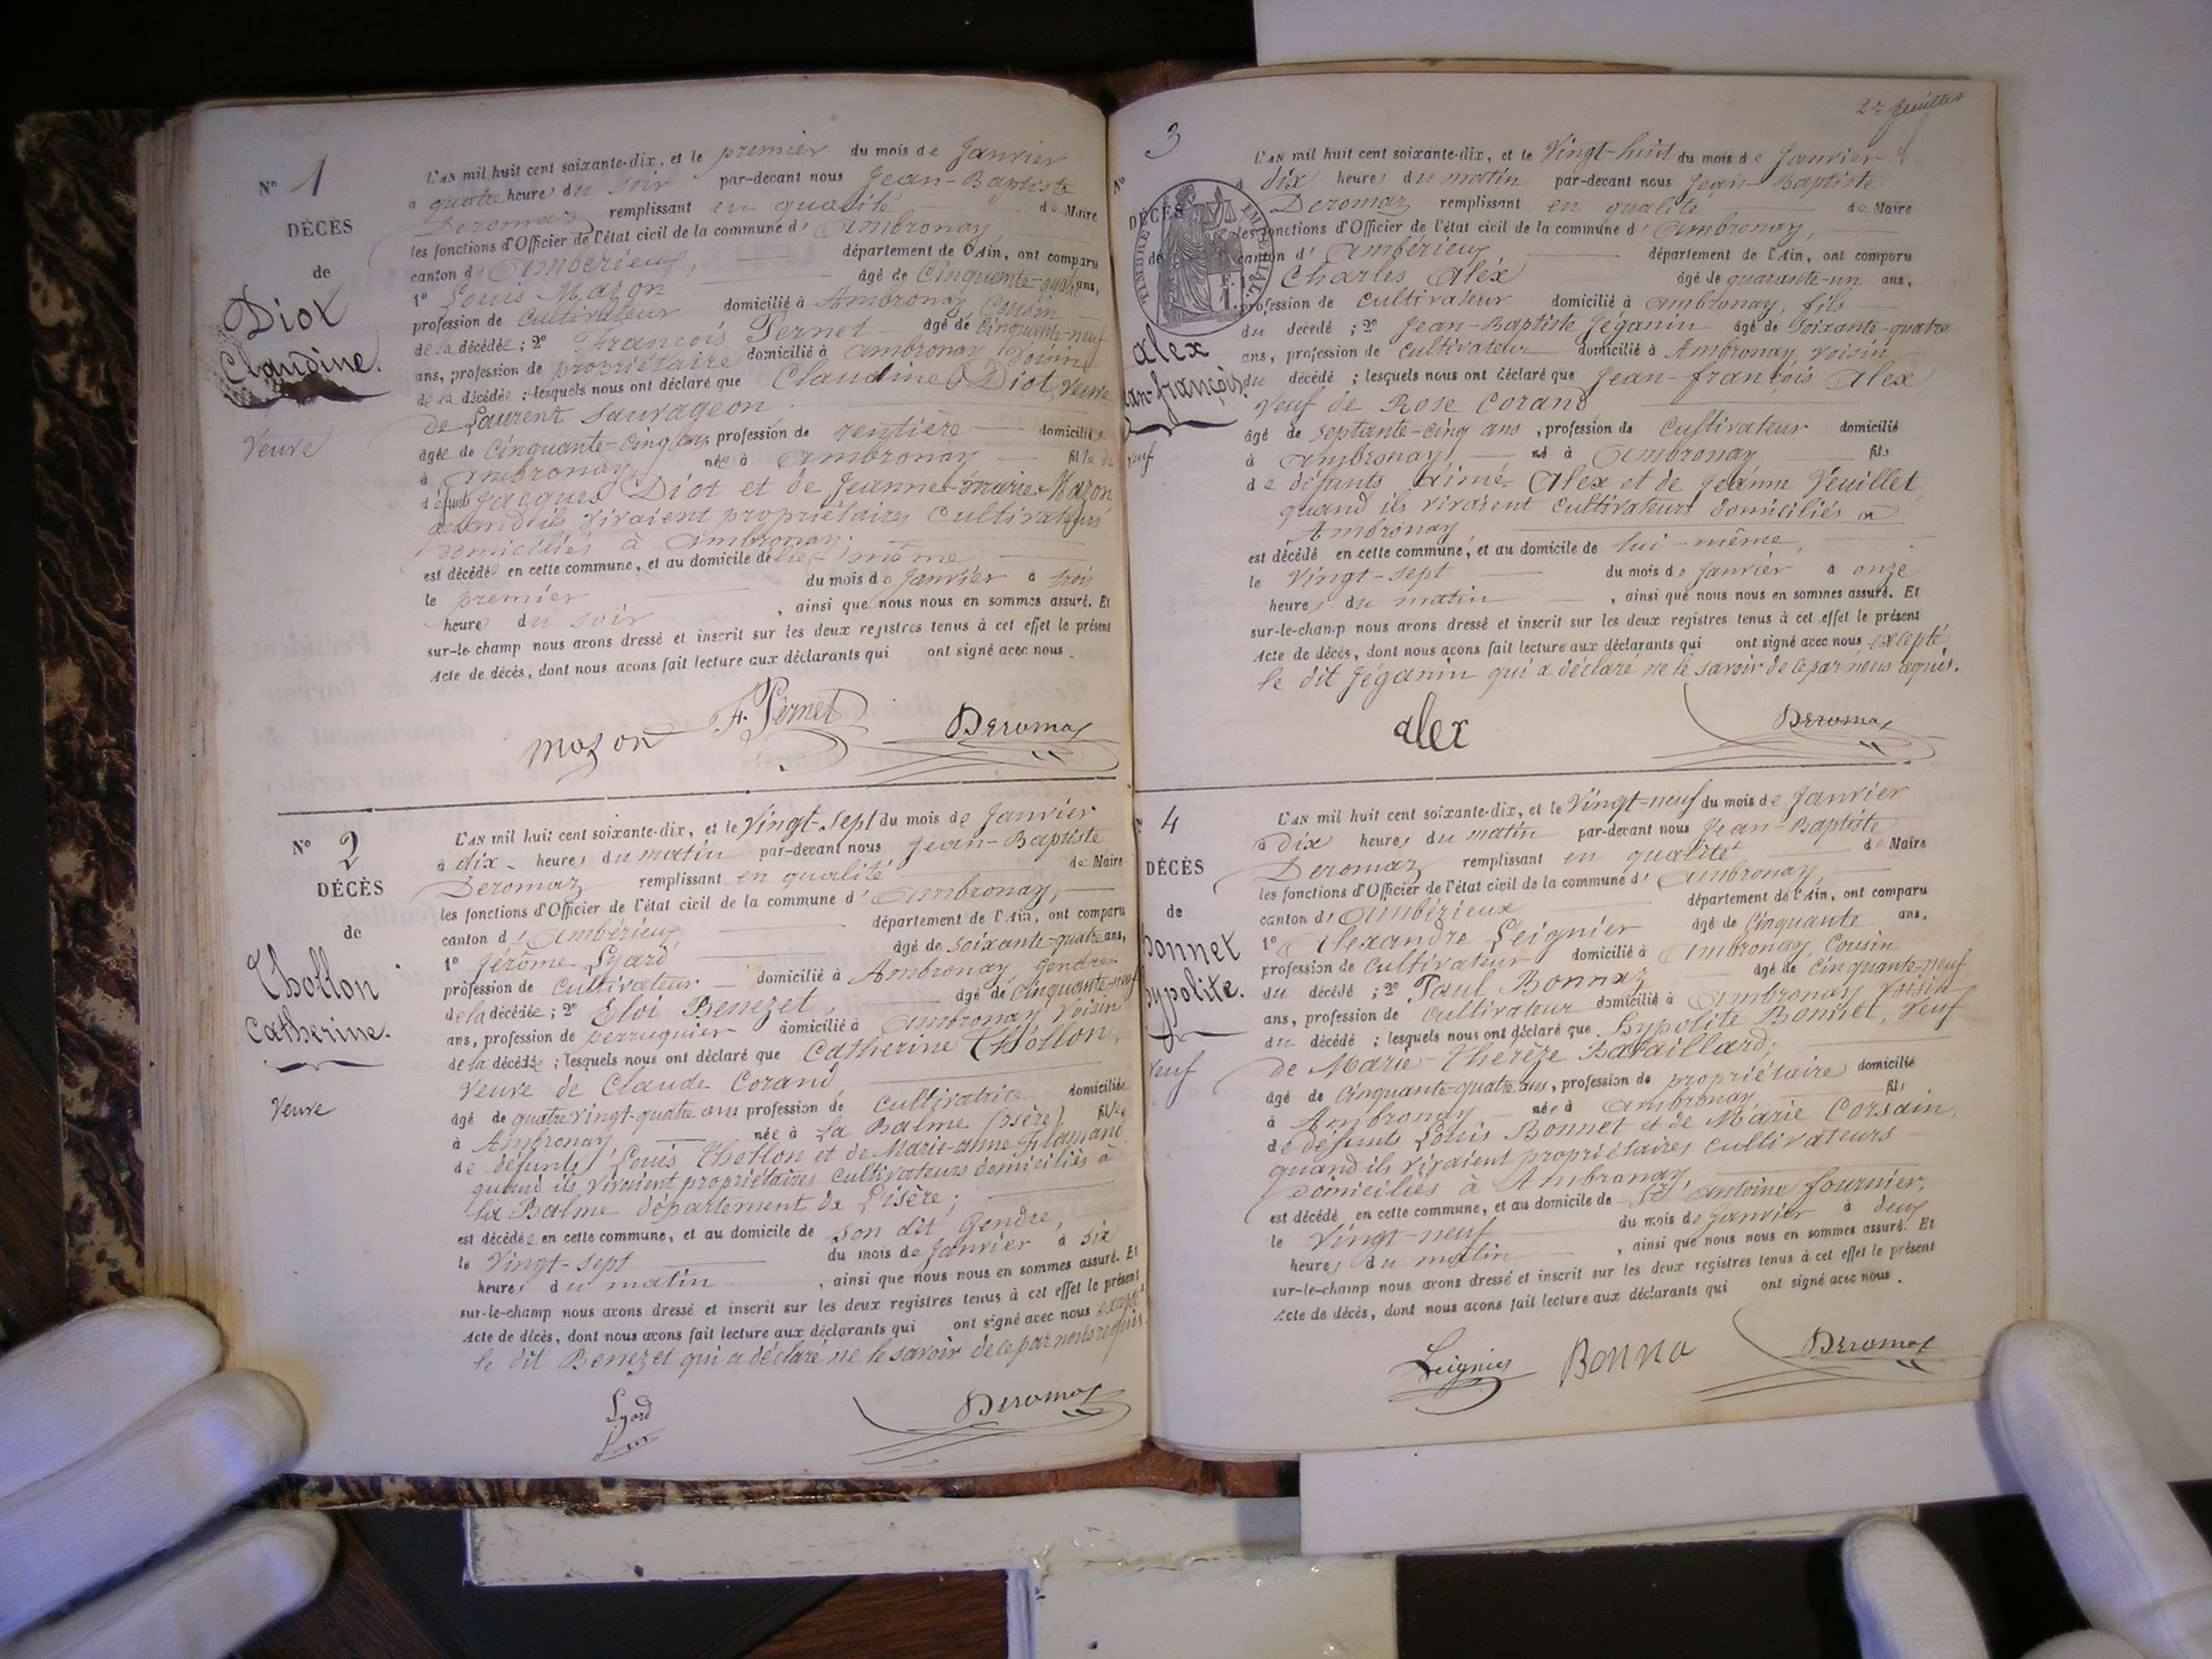 N° 1
DÉCÈS
de
Diot
Claudine.
Veuve
L'AN mil huit cent soixante-dix, et le premier du mois de Janvier
à quatre heures du soir par-devant nous Jean-Baptiste
Deromaz remplissant en qualité de Maire
les fonctions d'Officier de l'état civil de la commune d'Ambronay,
canton d'Ambérieux, département de l'Ain, ont comparu
1° Louis Mazon âgé de Cinquante-quatre ans,
profession de Cultivateur domicilié à Ambronay, Cousin
de la décédée ; 2° François Pernet âgé de Cinquante-neuf
ans, profession de propriétaire domicilié à Ambronay Voisin
de la décédée ; lesquels nous ont déclaré que Claudine Diot, Veuve
de Laurent Sauvageon.
âgée de Cinquante-Cinq ans profession de rentière domiciliée
à Ambronay, née à Ambronay fille de
défunts Jacques Diot et de Jeanne-Marie Mazon
quand ils vivaient propriétaires Cultivateurs
domiciliés à Ambronay.
est décédée en cette commune, et au domicile de elle-même
le premier du mois de Janvier à trois
heures du soir, ainsi que nous nous en sommes assuré. Et
sur-le-champ nous avons dressé et inscrit sur les deux registres tenus à cet effet le présent
Acte de décès, dont nous avons fait lecture aux déclarants qui ont signé avec nous.
mazon F. Pernet Deromaz
N° 2
DÉCÈS
de
Thollon
Catherine.
Veuve
L'AN mil huit cent soixante-dix, et le Vingt-Sept du mois de Janvier
à dix heures du matin par-devant nous Jean-Baptiste
Deromaz remplissant en qualité de Maire
les fonctions d'Officier de l'état civil de la commune d'Ambronay,
canton d'Ambérieux, département de l'Ain, ont comparu
1° Jérôme Lyard âgé de Soixante-quatre ans,
profession de Cultivateur domicilié à Ambronay, Gendre
de la décédée ; 2° Eloi Benezet, âgé de Cinquante-neuf
ans, profession de perruquier domicilié à Ambronay Voisin
de la décédée ; lesquels nous ont déclaré que Catherine Thollon,
Veuve de Claude Corand,
âgé de quatre vingt-quatre ans profession de Cultivatrice domiciliée
à Ambronay, née à La Balme (Isère) fille
de défunts Louis Thollon et de Marie-anne Flamand
quand ils vivaient propriétaires Cultivateurs domiciliés à
la Balme département de l'Isère ;
est décédée en cette commune, et au domicile de Son dit Gendre,
le Vingt-sept du mois de Janvier à Six
heures du matin, ainsi que nous nous en sommes assuré. Et
sur-le-champ nous avons dressé et inscrit sur les deux registres tenus à cet effet le présent
Acte de décès, dont nous avons fait lecture aux déclarants qui ont signé avec nous excepté
le dit Benezet qui a déclaré ne le savoir de ce par nous requis.
Lyard Deromaz
2e feuillet
N° 3
DÉCÈS
de
TIMBRE IMPÉRIAL
1 F.
Alex
Jean-François.
Veuf
L'AN mil huit cent soixante-dix, et le Vingt-huit du mois de Janvier
à dix heures du matin par-devant nous Jean-Baptiste
Deromaz remplissant en qualité de Maire
les fonctions d'Officier de l'état civil de la commune d'Ambronay,
canton d'Ambérieux département de l'Ain, ont comparu
1° Charles Alex âgé de quarante-un ans,
profession de Cultivateur domicilié à Ambronay, fils
du décédé ; 2° Jean-Baptiste Jéganin âgé de Soixante-quatre
ans, profession de Cultivateur domicilié à Ambronay, voisin
du décédé ; lesquels nous ont déclaré que Jean-françois Alex
Veuf de Rose Corand
âgé de Septante-Cinq ans, profession de Cultivateur domicilié
à Ambronay, né à Ambronay fils
de défunts Aimé Alex et de Jeanne Veuillet
quand ils vivaient Cultivateurs domiciliés à
Ambronay
est décédé en cette commune, et au domicile de lui-même,
le Vingt-sept du mois de Janvier à onze
heures du matin, ainsi que nous nous en sommes assuré. Et
sur-le-champ nous avons dressé et inscrit sur les deux registres tenus à cet effet le présent
Acte de décès, dont nous avons fait lecture aux déclarants qui ont signé avec nous excepté
le dit Jéganin qui a déclaré ne le savoir de ce par nous requis.
alex Deromaz
4
DÉCÈS
de
Bonnet
hypolite.
Veuf
L'AN mil huit cent soixante-dix, et le Vingt-neuf du mois de Janvier
à dix heures du matin par-devant nous Jean-Baptiste
Deromaz remplissant en qualité de Maire
les fonctions d'Officier de l'état civil de la commune d'Ambronay,
canton d'Ambérieux département de l'Ain, ont comparu
1° Alexandre Leignier âgé de Cinquante ans,
profession de Cultivateur domicilié à Ambronay, Cousin
du décédé ; 2° Paul Bonnaz âgé de Cinquante-neuf
ans, profession de Cultivateur domicilié à Ambronay voisin
du décédé ; lesquels nous ont déclaré que hypolite Bonnet, Veuf
de Marie-Thérèze Bataillard,
âgé de Cinquante-quatre ans, profession de propriétaire domicilié
à Ambronay née à Ambronay fils
de défunts Louis Bonnet et de Marie Corsain,
quand ils vivaient propriétaires Cultivateurs
domiciliés à Ambronay,
est décédé en cette commune, et au domicile de Sr antoine fournier,
le Vingt-neuf du mois de Janvier à deux
heures du matin, ainsi que nous nous en sommes assuré. Et
sur-le-champ nous avons dressé et inscrit sur les deux registres tenus à cet effet le présent
Acte de décès, dont nous avons fait lecture aux déclarants qui ont signé avec nous.
Leignier Bonna Deromaz